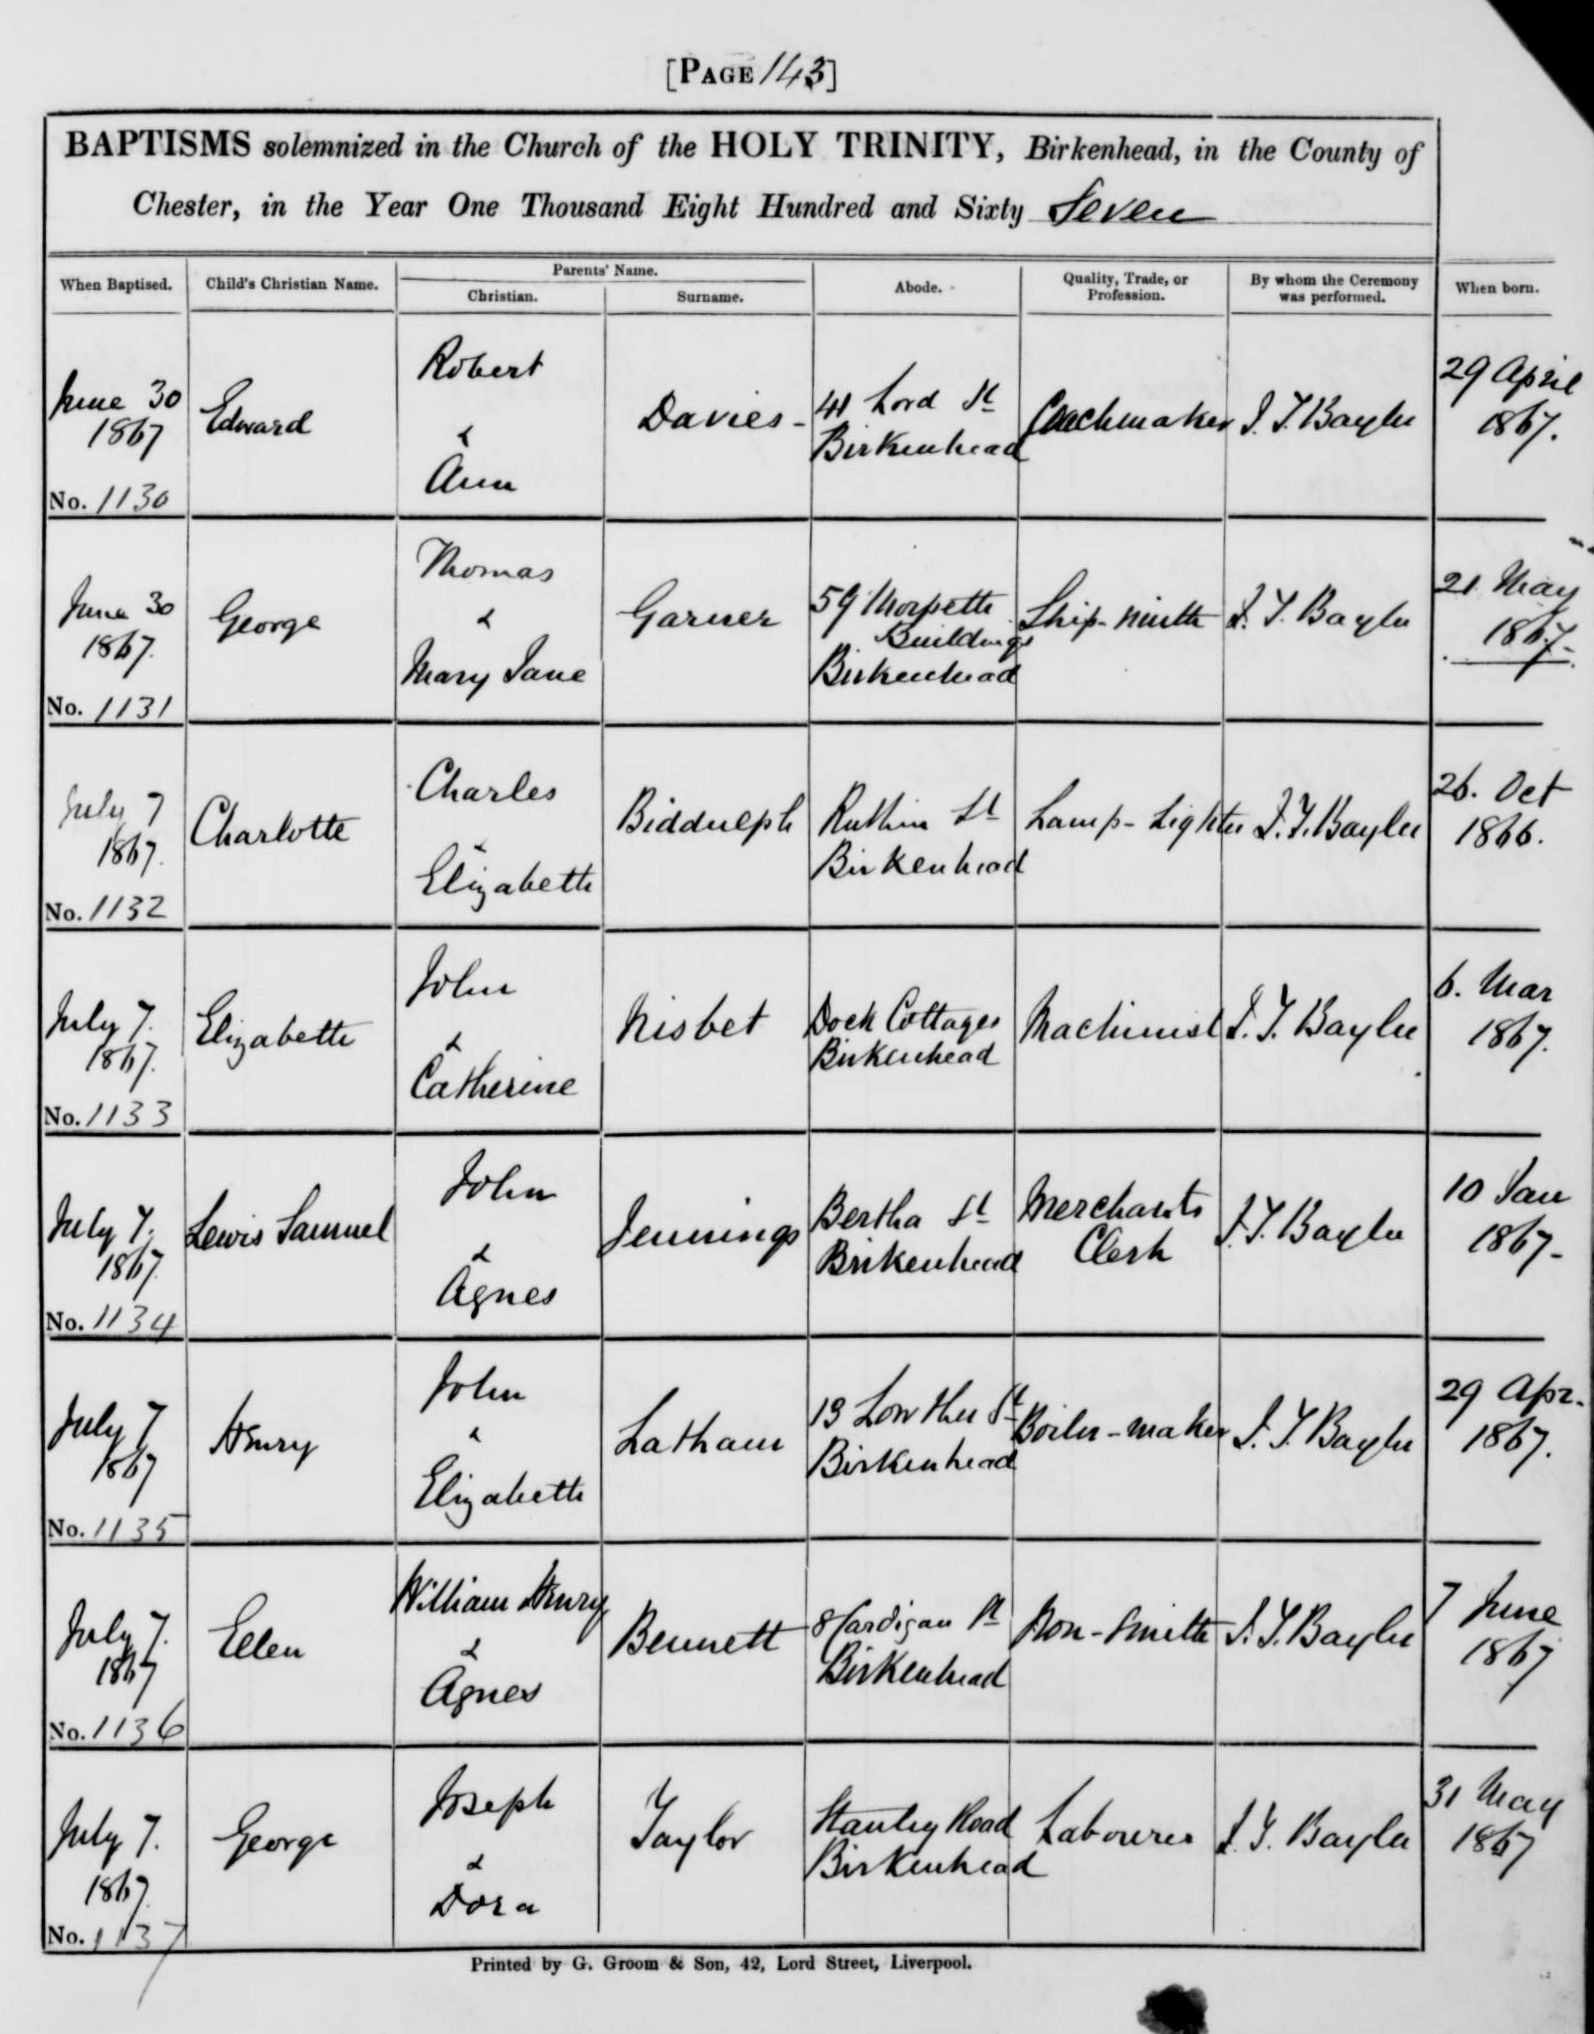 [PAGE 143]
BAPTISMS solemnized in the Church of the HOLY TRINITY, Birkenhead, in the County of
Chester, in the Year One Thousand Eight Hundred and Sixty Seven
When Baptised.
Child's Christian Name.
Parents' Name.
Christian.
Surname.
Abode.
Quality, Trade, or
Profession.
By whom the Ceremony
was performed.
When born.
June 30
1867
No. 1130
Edward
Robert
&
Ann
Davies
41 Lord St
Birkenhead
Coachmaker
29 April
1867.
June 30
1867.
No. 1131
George
Thomas
&
Mary Jane
Garner
59 Morpeth
Buildings
Birkenhead
Ship-smith
21 May
1867
July 7
1867.
No. 1132
Charlotte
Charles
&
Elizabeth
Biddulph
Ruthin St
Birkenhead
Lamp-Lighter
26. Oct
1866.
July 7.
1867.
No. 1133
Elizabeth
John
&
Catherine
Nisbet
Dock Cottages
Birkenhead
Machinist
6. Mar
1867.
July 7.
1867
No. 1134
Lewis Samuel
John
&
Agnes
Jennings
Bertha St
Birkenhead
Merchants
Clerk
10 Jan
1867-
July 7
1867
No. 1135
Henry
John
&
Elizabeth
Latham
13 Lowther St
Birkenhead
Boiler-maker
29 Apr.
1867.
July 7.
1867
No. 1136
Ellen
William Henry
&
Agnes
Bennett
8 Cardigan St
Birkenhead
Iron-Smith
7 June
1867
July 7.
1867
No. 1137
George
Joseph
&
Dora
Taylor
Stanley Road
Birkenhead
Labourer
31 May
1867
Printed by G. Groom & Son, 42, Lord Street, Liverpool.